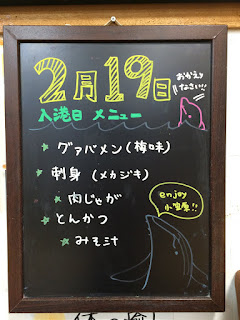 2月19日
おかえり
なさい!!
入港日 メニュー
★ グァバメン(梅味)
★ 刺身 (メカジキ)
★ 肉じゃが
★ とんかつ
★ みそ汁
enjoy
小笠原!!